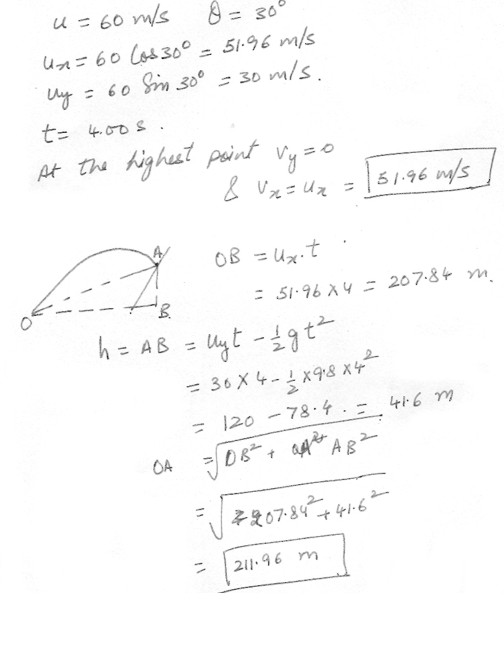 u = 60 m/s θ = 30°
ux = 60 Cos 30° = 51.96 m/s
uy = 60 Sin 30° = 30 m/s.
t = 4.00 s.
At the highest point Vy = 0
& Vx = ux = 51.96 m/s
A
O
B.
OB = ux.t
= 51.96 x 4 = 207.84 m.
h = AB = uyt - 1/2 gt²
= 30 x 4 - 1/2 x 9.8 x 4²
= 120 - 78.4. = 41.6 m
OA = √OB² + AB²
= √207.84² + 41.6²
= 211.96 m